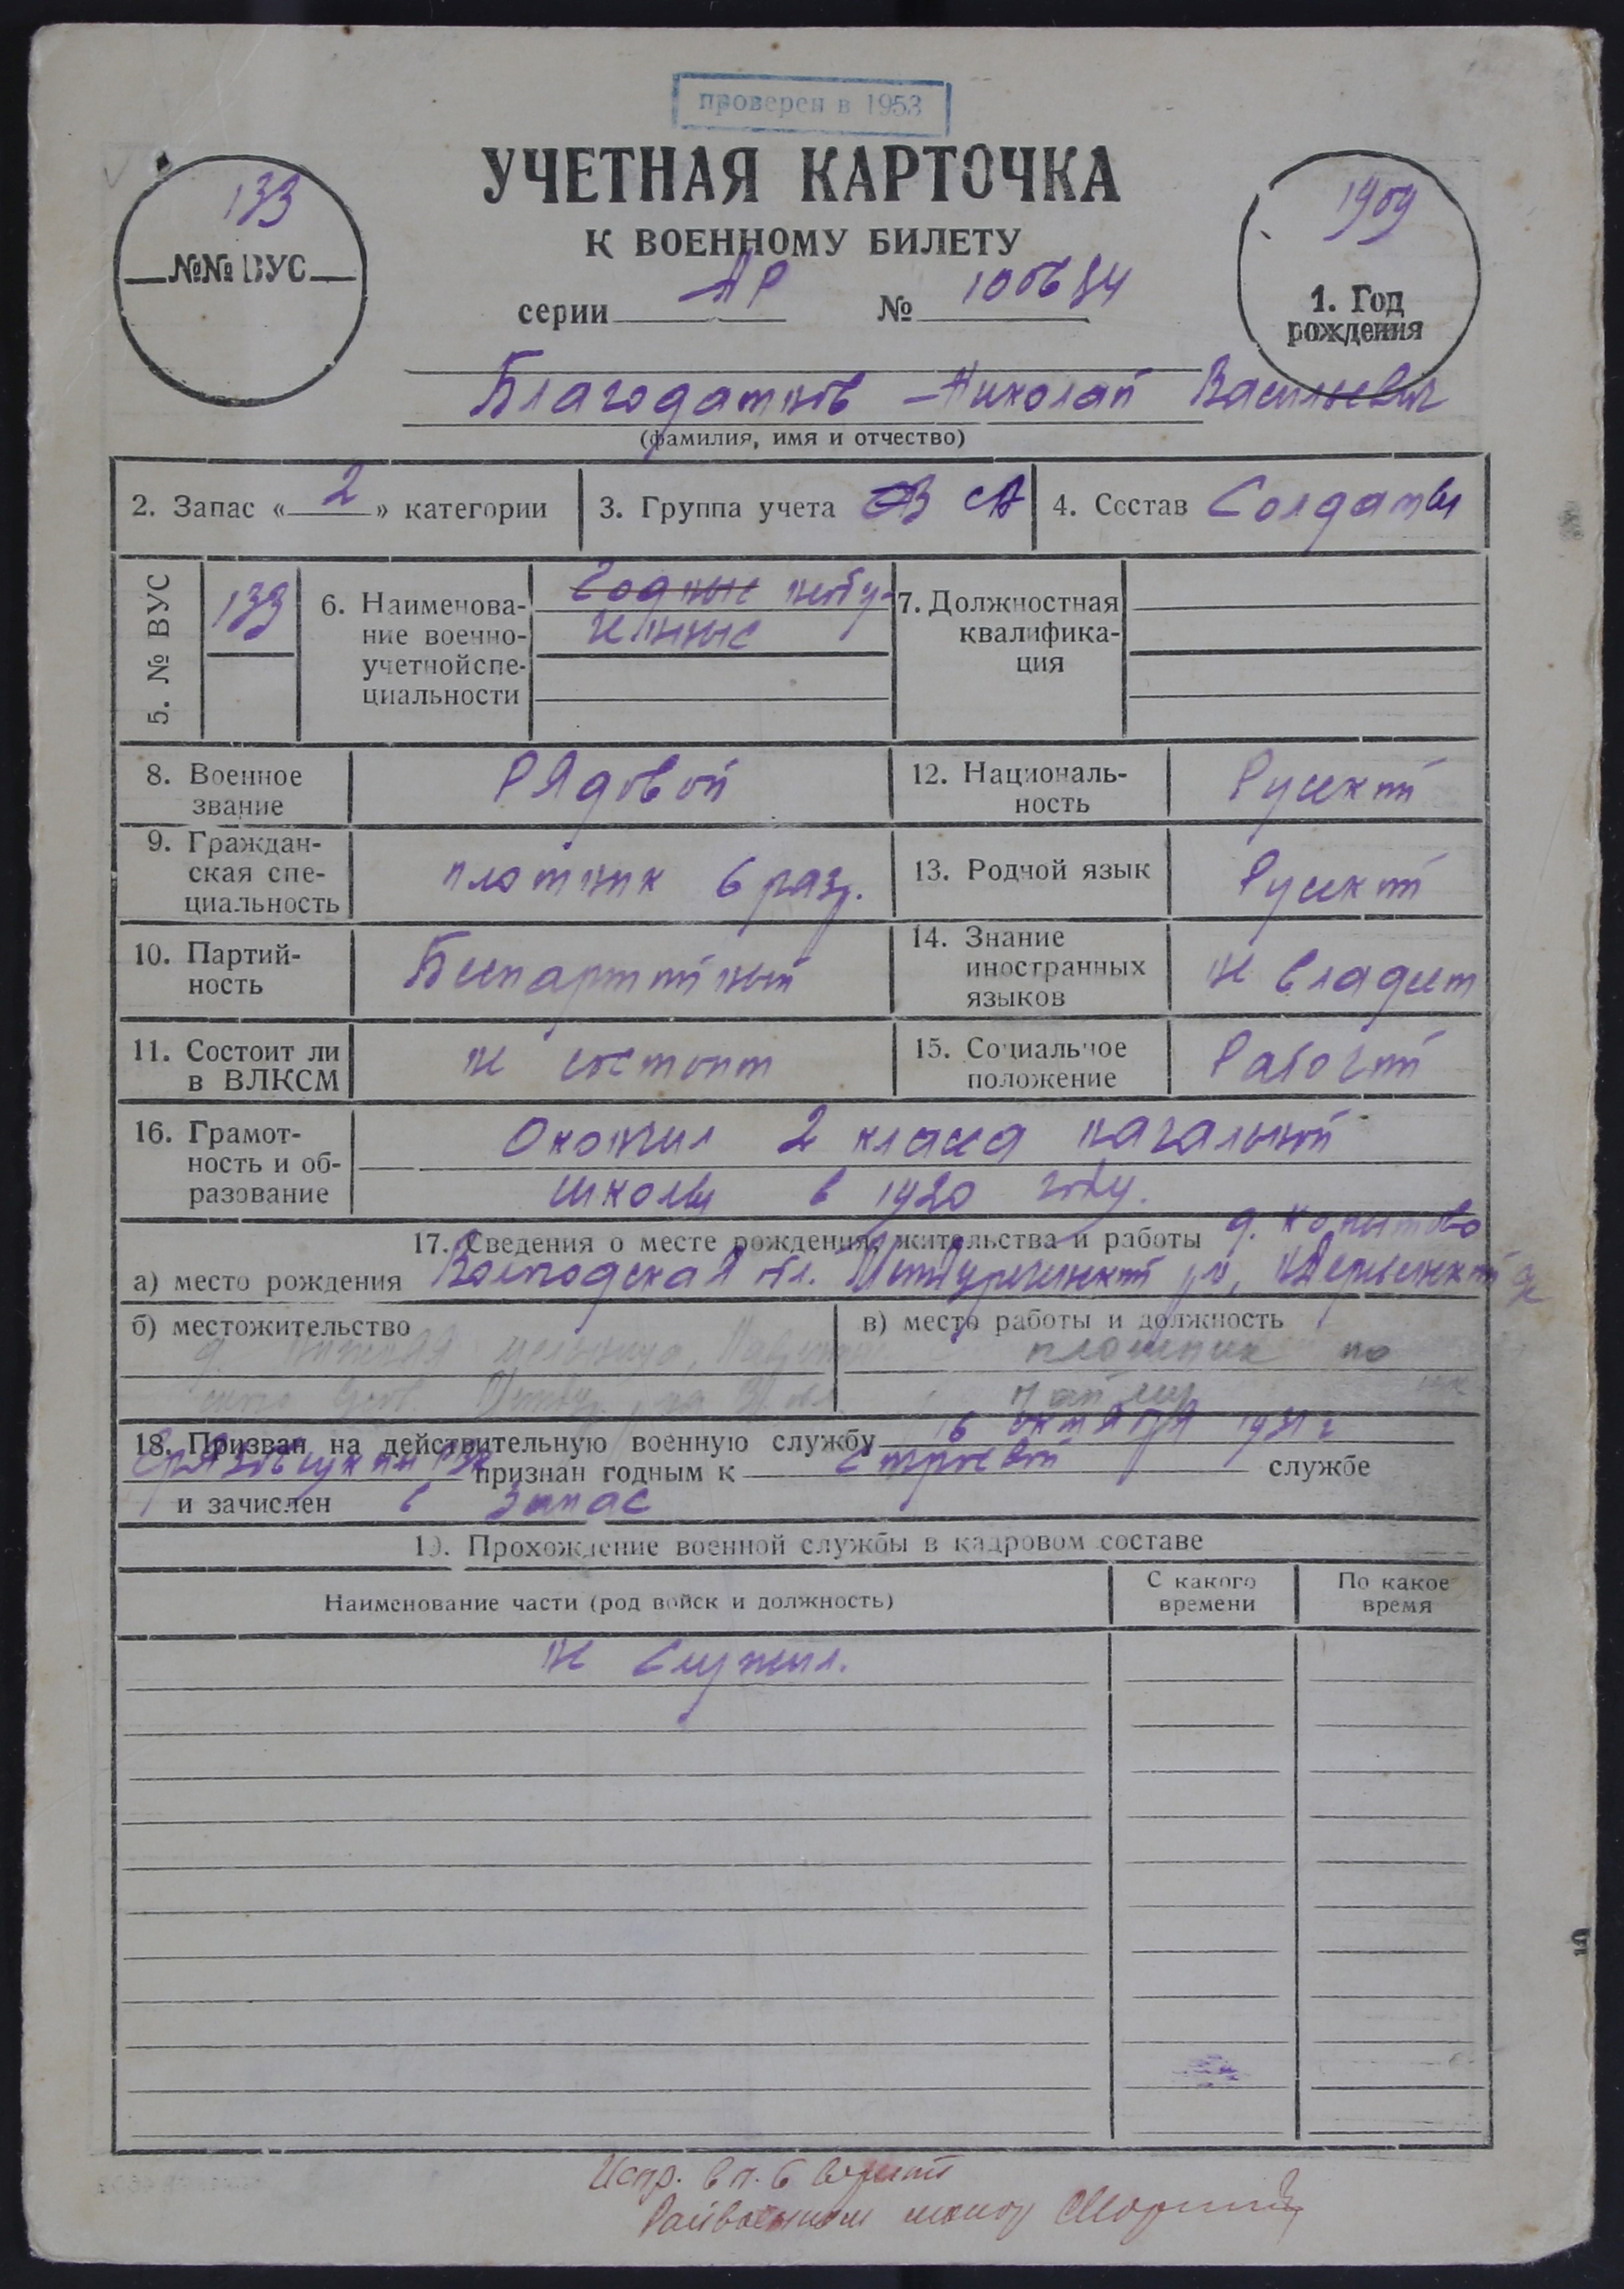 проверен в 1953
УЧЕТНАЯ КАРТОЧКА
К ВОЕННОМУ БИЛЕТУ
133
№№ ВУС
серии АР № 1006
1909
1. Год
рождения
Благодатнов Николай Васильевич
(фамилия, имя и отчество)
2. Запас « 2 » категории
3. Группа учета СА
4. Состав Солдаты
5. № ВУС
133
6. Наименова-
ние военно-
учетной спе-
циальности
Годные необу-
ченные
7. Должностная
квалифика-
ция
8. Военное
звание
Рядовой
12. Националь-
ность
Русский
9. Граждан-
ская спе-
циальность
плотник 6 разр.
13. Родной язык
Русский
10. Партий-
ность
Беспартийный
14. Знание
иностранных
языков
не владеет
11. Состоит ли
в ВЛКСМ
не состоит
15. Социальное
положение
Рабочий
16. Грамот-
ность и об-
разование
Окончил 2 класса начальной
школы в 1920 году.
17. Сведения о месте рождения, жительства и работы д. Копытово
а) место рождения Вологодская обл. Междуреченский
б) местожительство
в) место работы и должность
плотник по
найму
18. Призван на действительную военную службу 16 октября 1931 г
признан годным к строевой службе
и зачислен в запас
19. Прохождение военной службы в кадровом составе
Наименование части (род войск и должность)
С какого
времени
По какое
время
не служил.
Испр. в п. 6 верить
Райвоенком